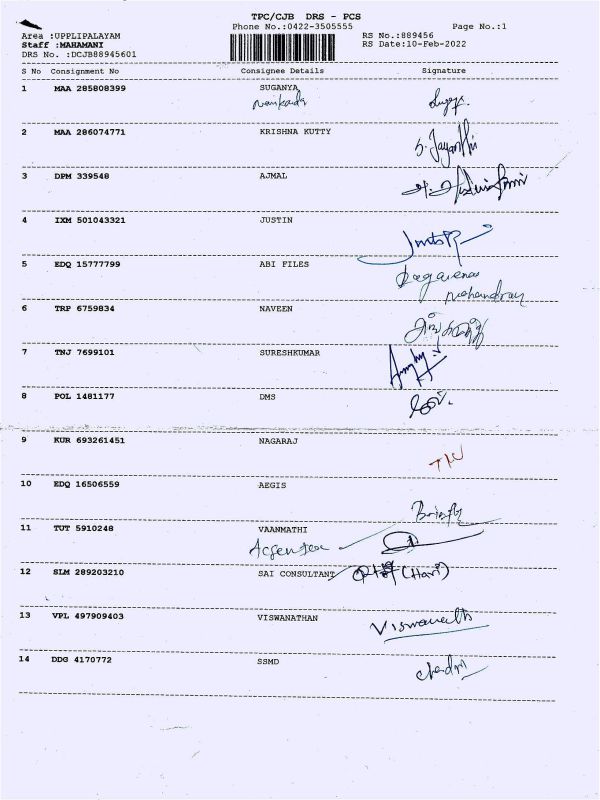 TPC/CJB DRS - PCS
Phone No.:0422-3505555 Page No.:1
Area :UPPLIPALAYAM RS No.:889456
Staff :MAHAMANI RS Date:10-Feb-2022
DRS No. :DCJB88945601
S No Consignment No Consignee Details Signature
1 MAA 285808399 SUGANYA
2 MAA 286074771 KRISHNA KUTTY
S. Jayanthi
3 DPM 339548 AJMAL
4 IXM 501043321 JUSTIN
5 EDQ 15777799 ABI FILES
6 TRP 6759834 NAVEEN
7 TNJ 7699101 SURESHKUMAR
8 POL 1481177 DMS
9 KUR 693261451 NAGARAJ
10 EDQ 16506559 AEGIS
11 TUT 5910248 VAANMATHI
12 SLM 289203210 SAI CONSULTANT (Hari)
13 VPL 497909403 VISWANATHAN
Viswanath
14 DDG 4170772 SSMD